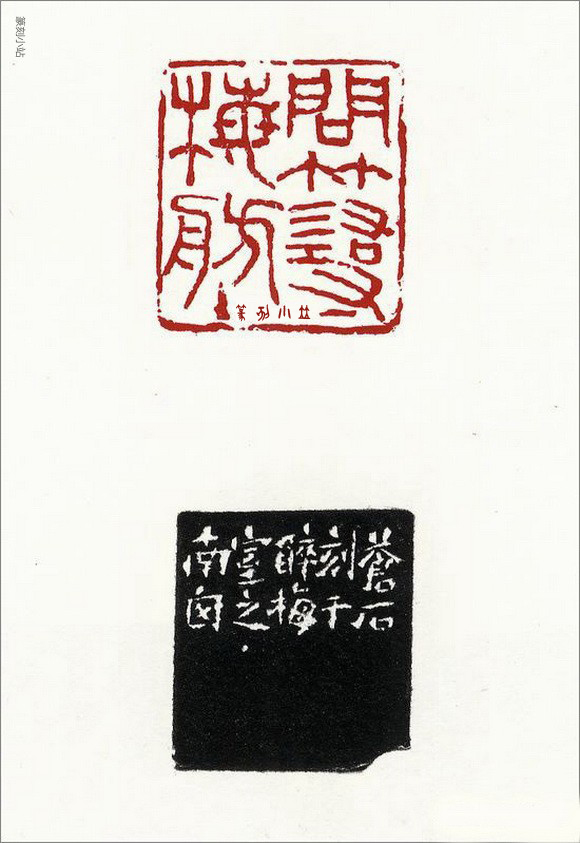 篆刻小站
問
梅
篆刻小站
蒼石
刻于
醉梅
室之
南囱